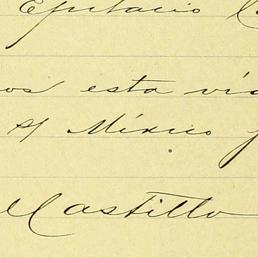 Epitacio
os esta
S/ México
Castillo